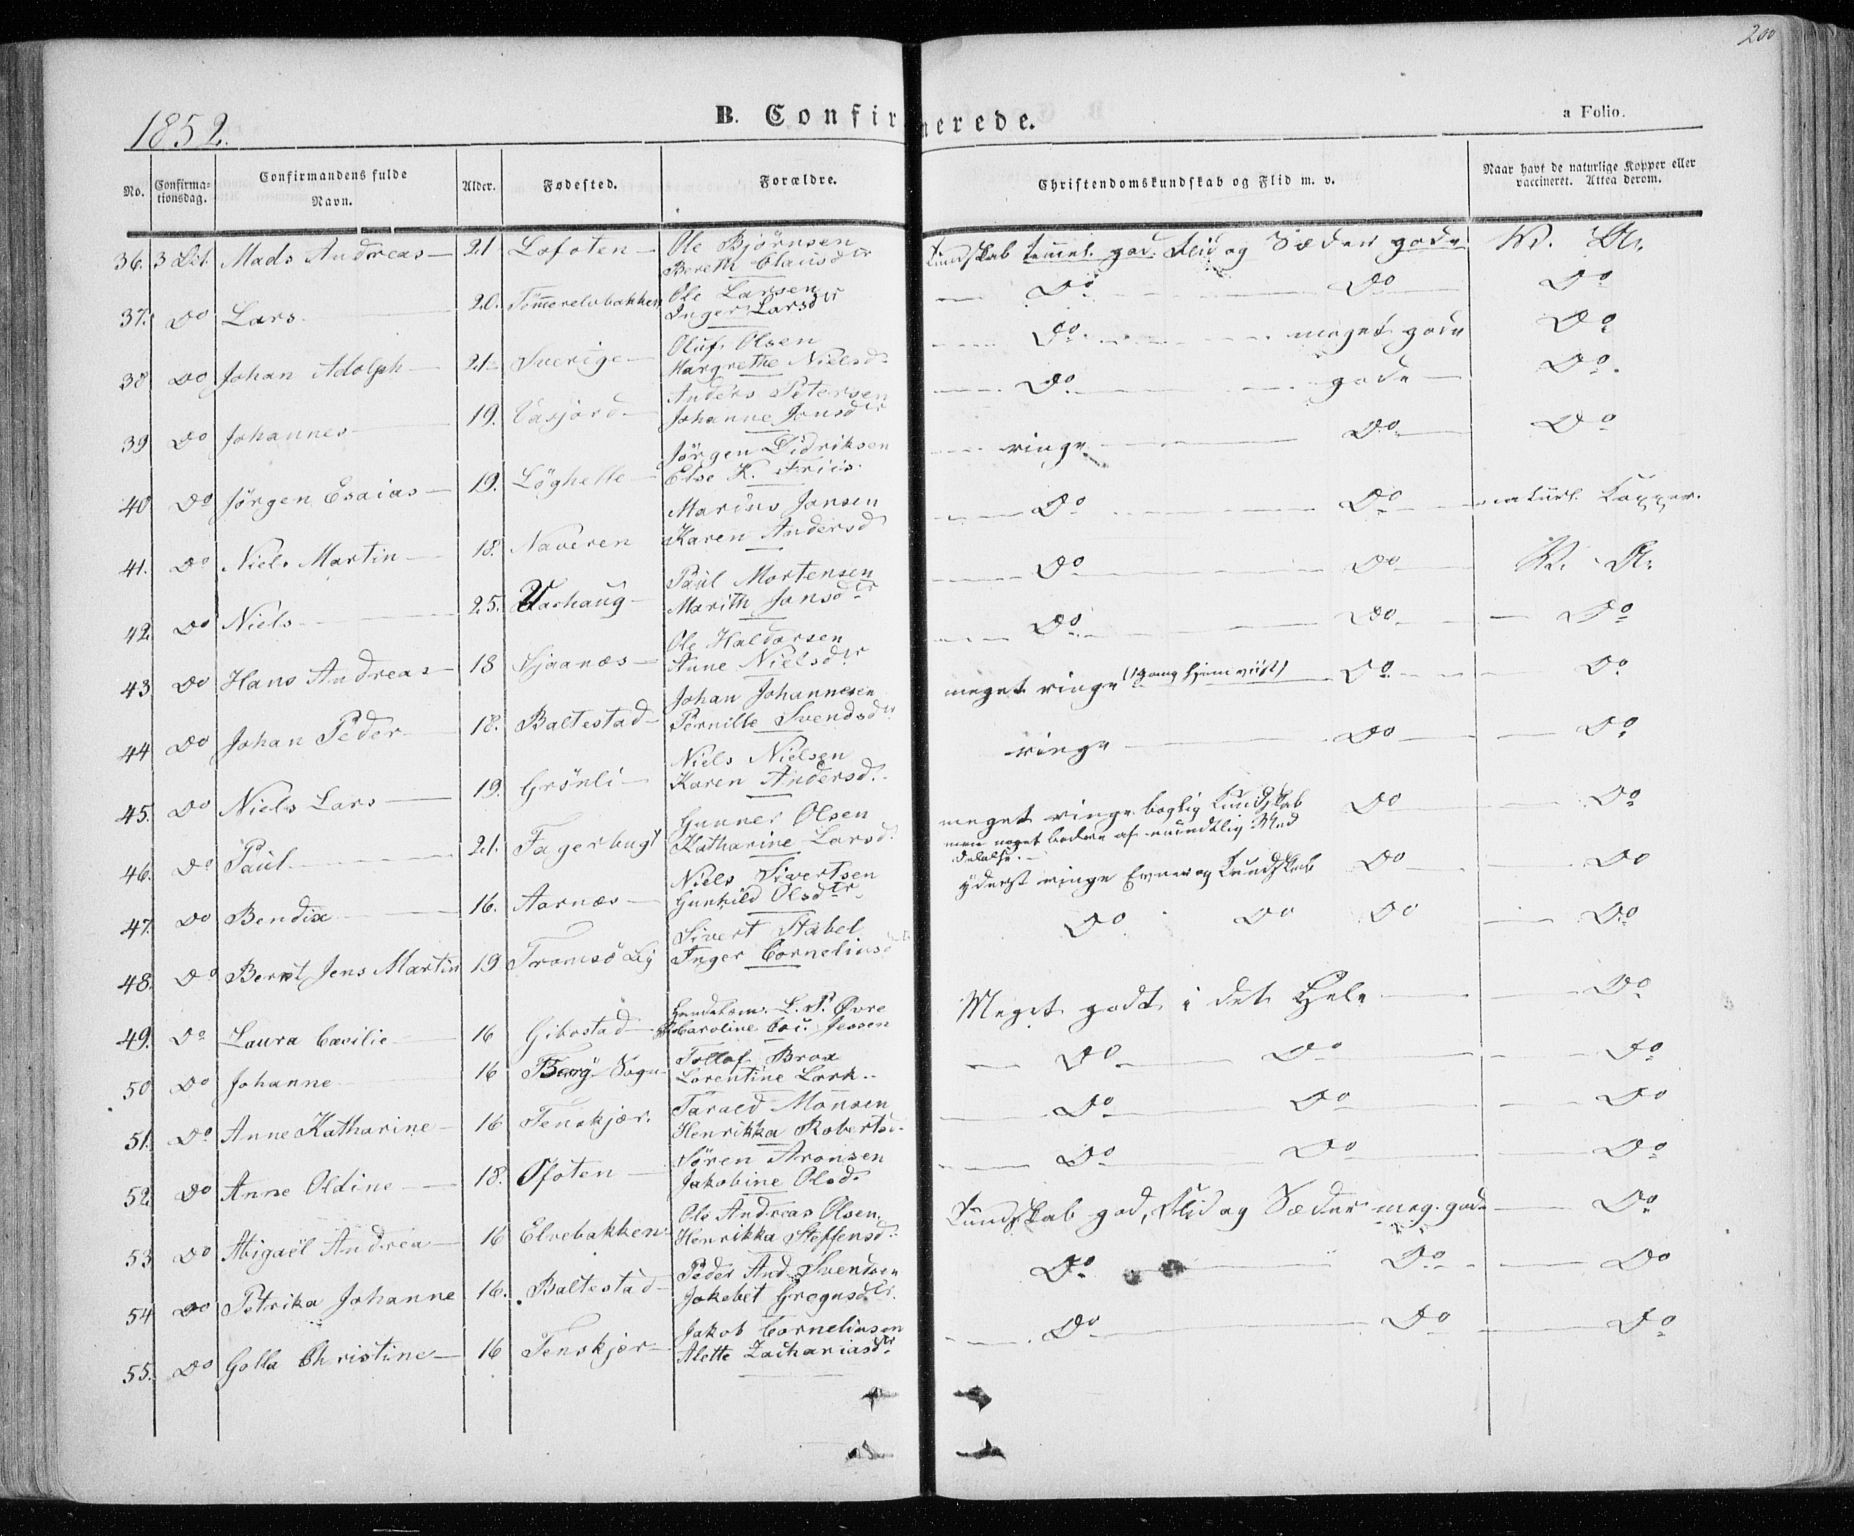 200
1852.
B. Confirmerede.
a Folio.
No. Confirmationsdag. Confirmandens fulde Navn. Alder. Fødested. Forældre. Christendomskundskab og Flid m. v. Naar havt de naturlige Kopper eller vaccineret. Attea derom.
36. 3 Oct. Mads Andreas 21 Lofoten Ole Björnsen Bereth Clausdtr Kundskab temmel. god. Flid og Sæder gode V. A.
37. Do Lars 20. Tömmerelvbakken Ole Larsen Inger Larsdtr Do Do Do
38 Do Johan Adolph 21 Sverige Oluf Olsen Margrethe Nielsd. Do meget gode Do
39 Do Johannes 19. Vasjord Anders Petersen Johanne Jonsdtr Do gode Do.
40 Do Jörgen Esaias 19. Löghelle Jörgen Didriksen Else K. Friis ringe Do Do
41. Do Niels Martin 18. Naveren Marius Jansen Karen Andersd Do Do naturl. Kopper.
42. Do Niels 25. Varhaug Paul Mortensen Marith Jonsdtr Do Do V. A.
43 Do Hans Andreas 18 Sjaanæs Ole Haldorsen Anne Nielsdtr Do Do Do
44 Do Johan Peder 18. Baltestad Johan Johannesen Pernille Svendsdtr meget ringe (1 gang hjemviist) Do Do
45. Do Niels Lars 19. Grönli Niels Nielsen Karen Andersd. ringe Do Do
46. Do Paul 21. Fagerbugt Gunner Olsen Katharine Larsd. meget ringe boglig Kundskab men noget bedre af mundtlig Meddelelse. Do Do
47. Do Bendix 16. Aarnæs Niels Sivertsen Gunhild Olsdtr yderst ringe Evner og Kundskab Do Do
48. Do Bernt Jens Martin 19 Tromsö By Sivert Stabel Inger Corneliusd Do Do Do Do
49. Do Laura Cæcilie 16 Gibostad Handelsm. L. P. Øvre Caroline Jessen Meget godt i det Hele Do
50 Do Johanne 16 Berg Sogn Tollof Brox Lorentine Lork Do Do Do
51. Do Anne Katharine 16 Tenskjær. Tarald Monsen Henrikka Robertsd. Do Do Do
52. Do Anne Oldine 18. Ofoten Sören Aronsen Jakobine Olsd. Do Do Do
53 Do Abigaël Andrea 16 Elvebakken Ole Andreas Olsen Henrikka Steffensd. Kundskab god, Flid og Sæder meg. gode Do
54 Do Petrika Johanne 16. Baltestad Peder And. Svendsen Jokobet Grognsdtr. Do Do Do
55. Do Golla Christine 16 Tenskjær Jakob Corneliusen Alette Zachariasdtr Do Do Do